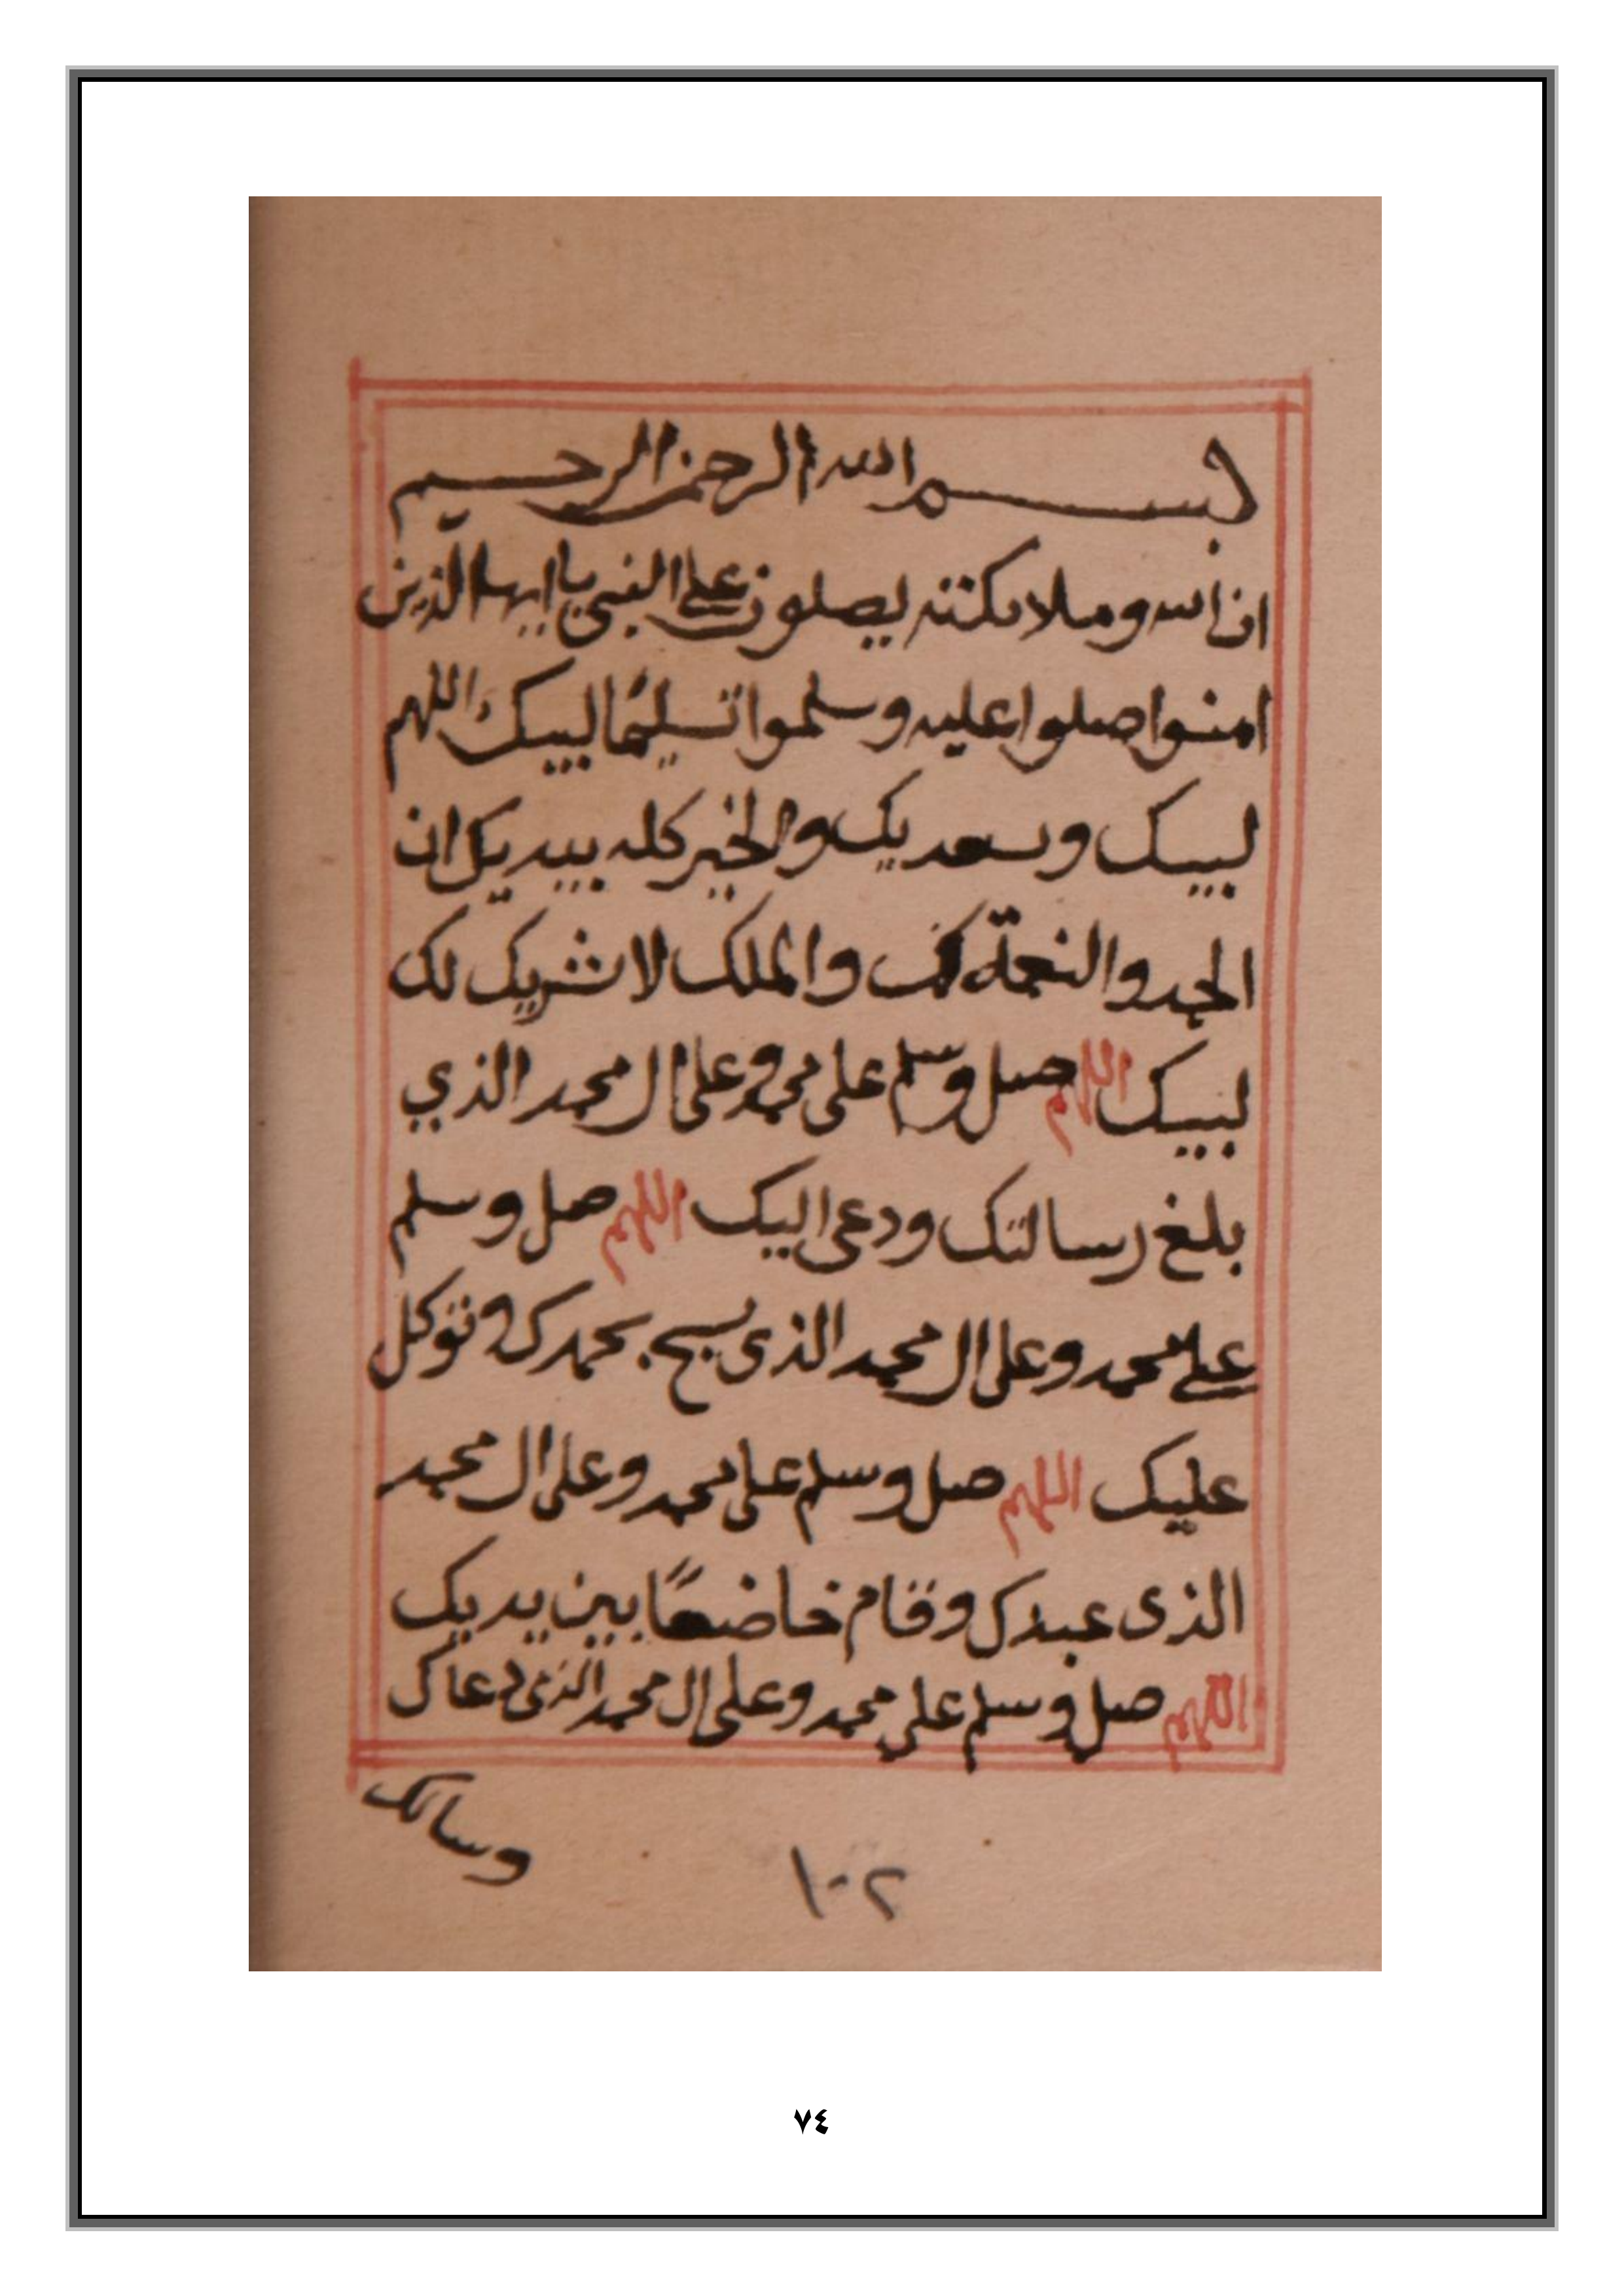 بسم الله الرحمن الرحيم
ان الله وملائكته يصلون على النبي يا ايها الذين
امنوا صلوا عليه وسلموا تسليمًا لبيك اللهم
لبيك وسعديك والخير كله بيديك ان
الحمد والنعمة لك والملك لا شريك لك
لبيك اللهم صل وسلم على محمد وعلى ال محمد الذي
بلغ رسالتك ودعى اليك اللهم صل وسلم
على محمد وعلى ال محمد الذى سبح بحمدك وتوكل
عليك اللهم صل وسلم على محمد وعلى ال محمد
الذى عبدك وقام خاضعًا بين يديك
اللهم صل وسلم على محمد وعلى ال محمد الذى دعاك
وسالك
١٠٢
٧٤